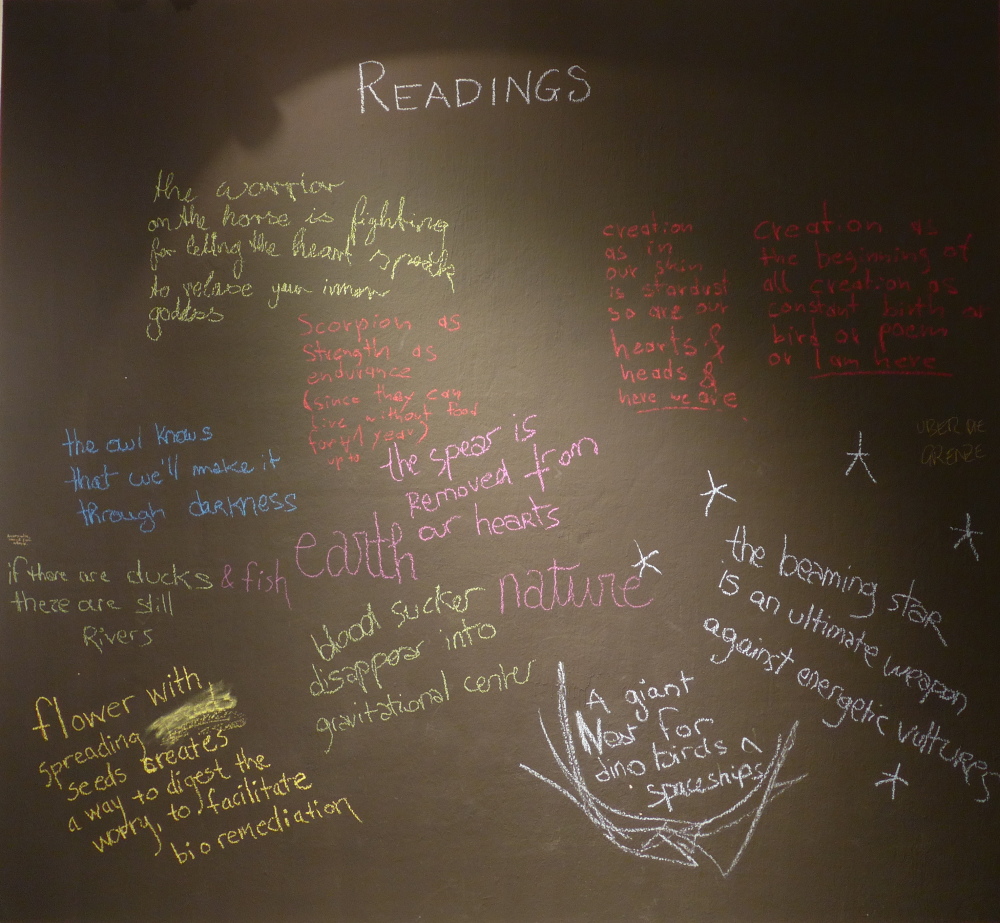 READINGS
the warrior
on the horse is fighting
for letting the heart speak
to release your inner
goddess
Scorpion as
strength as
endurance
(since they can
live without food
for 1 year)
up to
creation
as in
our skin
is stardust
so are our
hearts &
heads &
here we are
creation as
the beginning of
all creation as
constant birth or
bird or poem
or I am here
the owl knows
that we'll make it
through darkness
the spear is
removed from
our hearts
UBER DIE
GRENZE
earth
nature
if there are ducks & fish
there are still
Rivers
blood sucker
disappear into
gravitational center
the beaming star
is an ultimate weapon
against energetic vultures
flower with
spreading
seeds creates
a way to digest the
worry, to facilitate
bioremediation
A giant
Nest for
dino birds n
spaceships